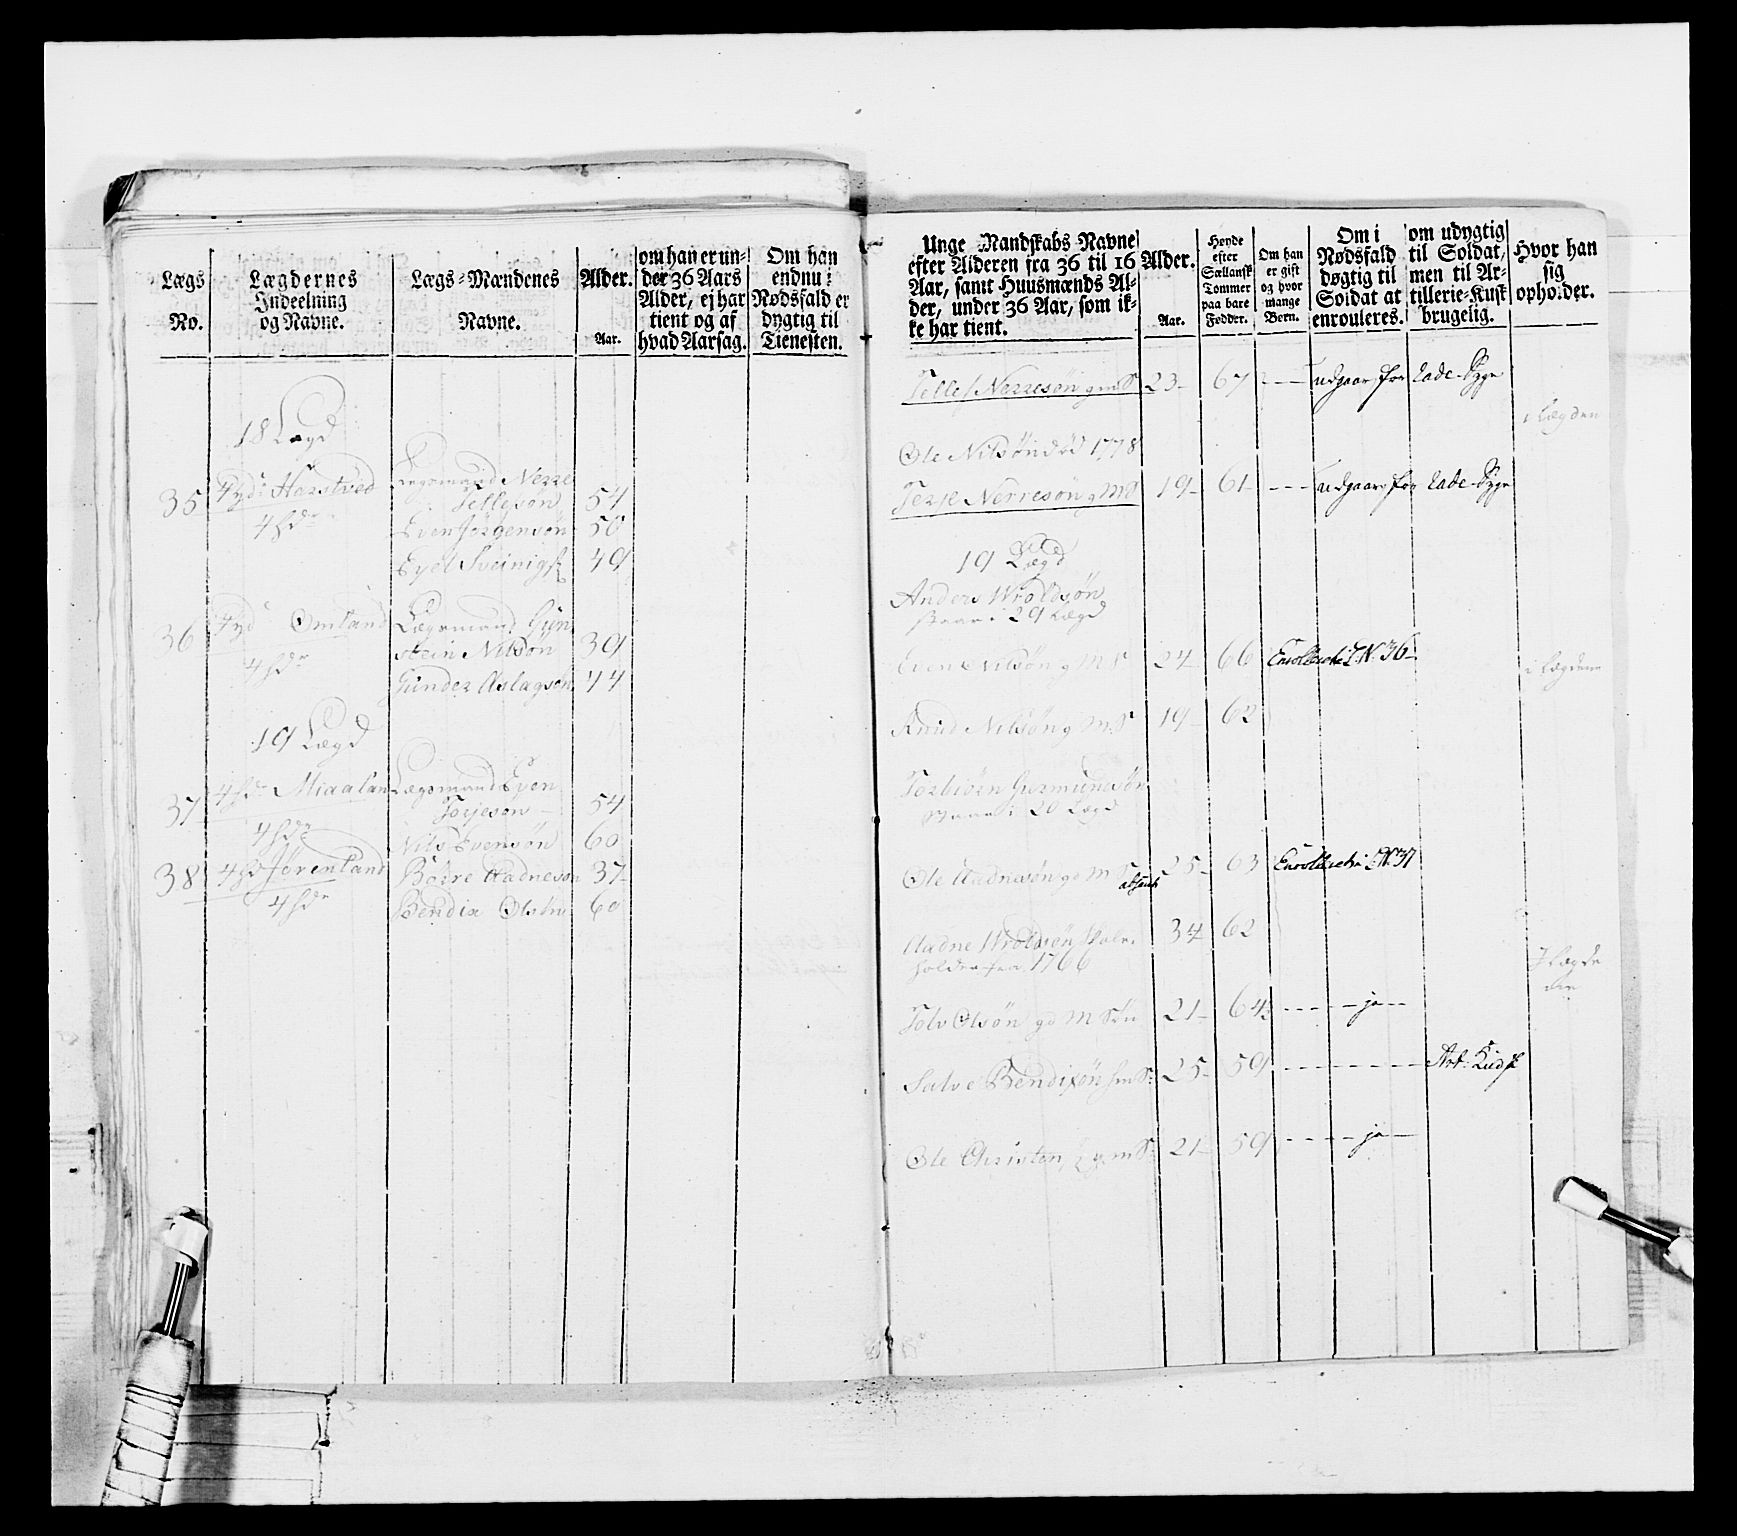 Lægs
No.
Lægdernes
Indeelning
og Navne.
Lægs-Mændenes
Navne.
Alder.
Aar.
om han er un-
der 36 Aars
Alder, ej har
tient og af
hvad Aarsag.
Om han
endnu i
Nødsfald er
dygtig til
Tienesten.
18 Lægd
35 Fyd: Harstved Lægsmand Nerre
Tellesøn 54
4 hdr Even Jørgensøn 50
Eyel Sveinigs 49
36 Fyd Omland Lægsmand Gun
stein Nilsøn 39
4 hdr
Gunder Aslagsøn 44
19 Lægd
37 4 hdr Miaaland Lægsmand Even
Torjesøn 54
4 hdr Nils Evensøn 60
38 4 hdr Jørenland Børre Aadnesøn 37
4 hdr Bendix Olsøn 60
Unge Mandskabs Navne
efter Alderen fra 36 til 16
Aar, samt Huusmænds Al-
der, under 36 Aar, som ik-
ke har tient.
Alder.
Aar.
Høyde
efter
Sællansk
Tommer
paa bare
Fødder.
Om han
er gift
og hvor
mange
Børn.
Om i
Nødsfald
døgtig til
Soldat at
enrouleres.
om udygtig
til Soldat,
men til Ar-
tillerie-Kusk
brugelig.
Hvor han
sig
opholder.
Tellef Nerresøn gmS 23 67 udgaar for Lade-Syge
i Lægden
Ole Nilsøn død 1778
Terje Nerresøn gMS 19 61 udgaar for Lade-Syge
19 Lægd
Anders Wroldsøn
staar i 29 Lægd
Even Nilsøn g M S 24 66 Enrolleret i L N: 36 i Lægden
Knud Nilsøn g M: S 19 62
Torbiørn Gurmundsøn
staar i 20 Lægd
Ole Aadnesøn gd M S 25 63 Enrolleret i L N: 37
absent
Aadne Wroldsøn
holden fra 1766 34 62
I Lægde
den
Tolv Olsøn gd M Søn 21 64½ ja
Salve Bendixøn hmS: 25 59 Art: Kudsk
Ole Christen gmS: 21 59 ja